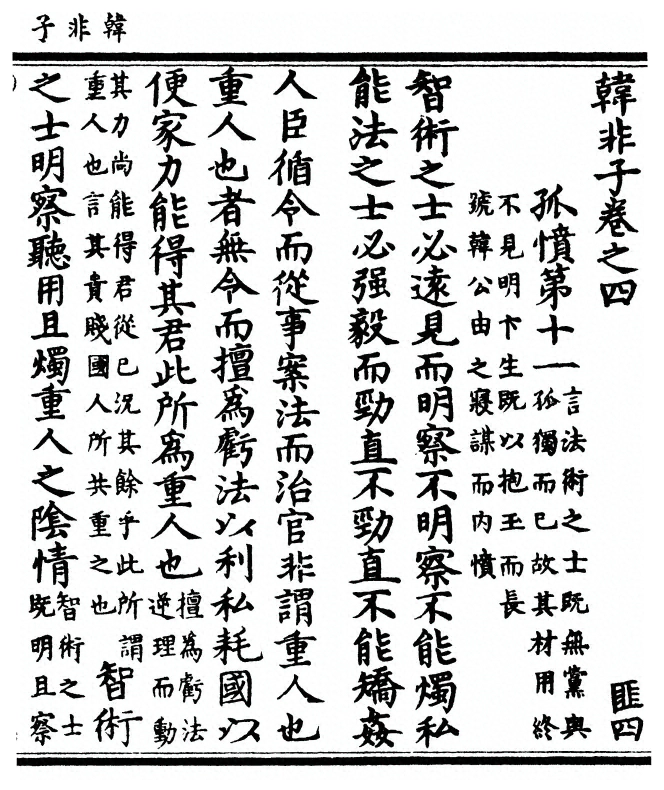 韓非子
韓非子卷之四
匪四
孤憤第十一
言法術之士既無黨與
孤獨而已故其材用終
不見明卞生既以抱玉而長
號韓公由之寢謀而内憤
智術之士必遠見而明察不明察不能燭私
能法之士必强毅而勁直不勁直不能矯姦
人臣循令而從事案法而治官非謂重人也
重人也者無令而擅為虧法以利私耗國以
便家力能得其君此所為重人也
擅為虧法
逆理而動
其力尚能得君從已況其餘乎此所謂
重人也言其貴賤國人所共重之也
智術
之士明察聽用且燭重人之陰情
智術之士
既明且察